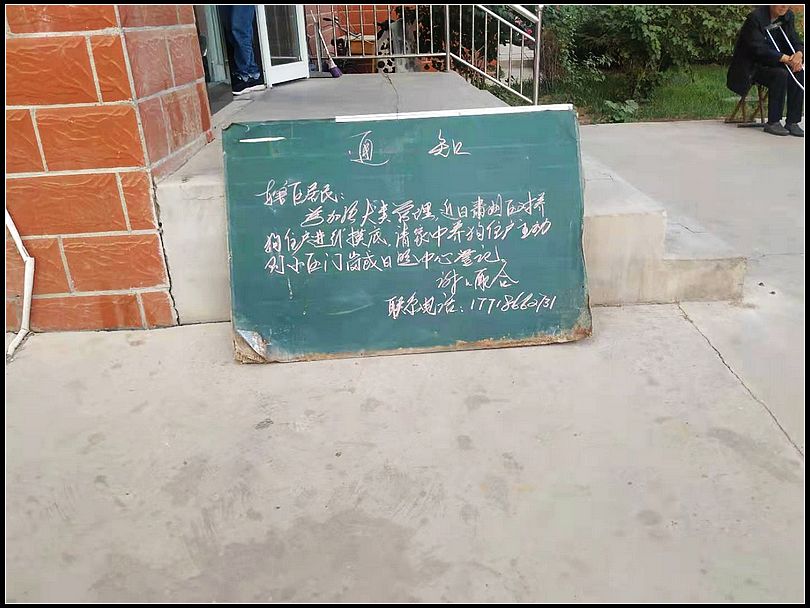 通 知
辖区居民：
为加强犬类管理，近日肃州区对养
狗住户进行摸底，请家中养狗住户主动
到小区门岗或日照中心登记。
谢谢配合
联系电话：17718662731